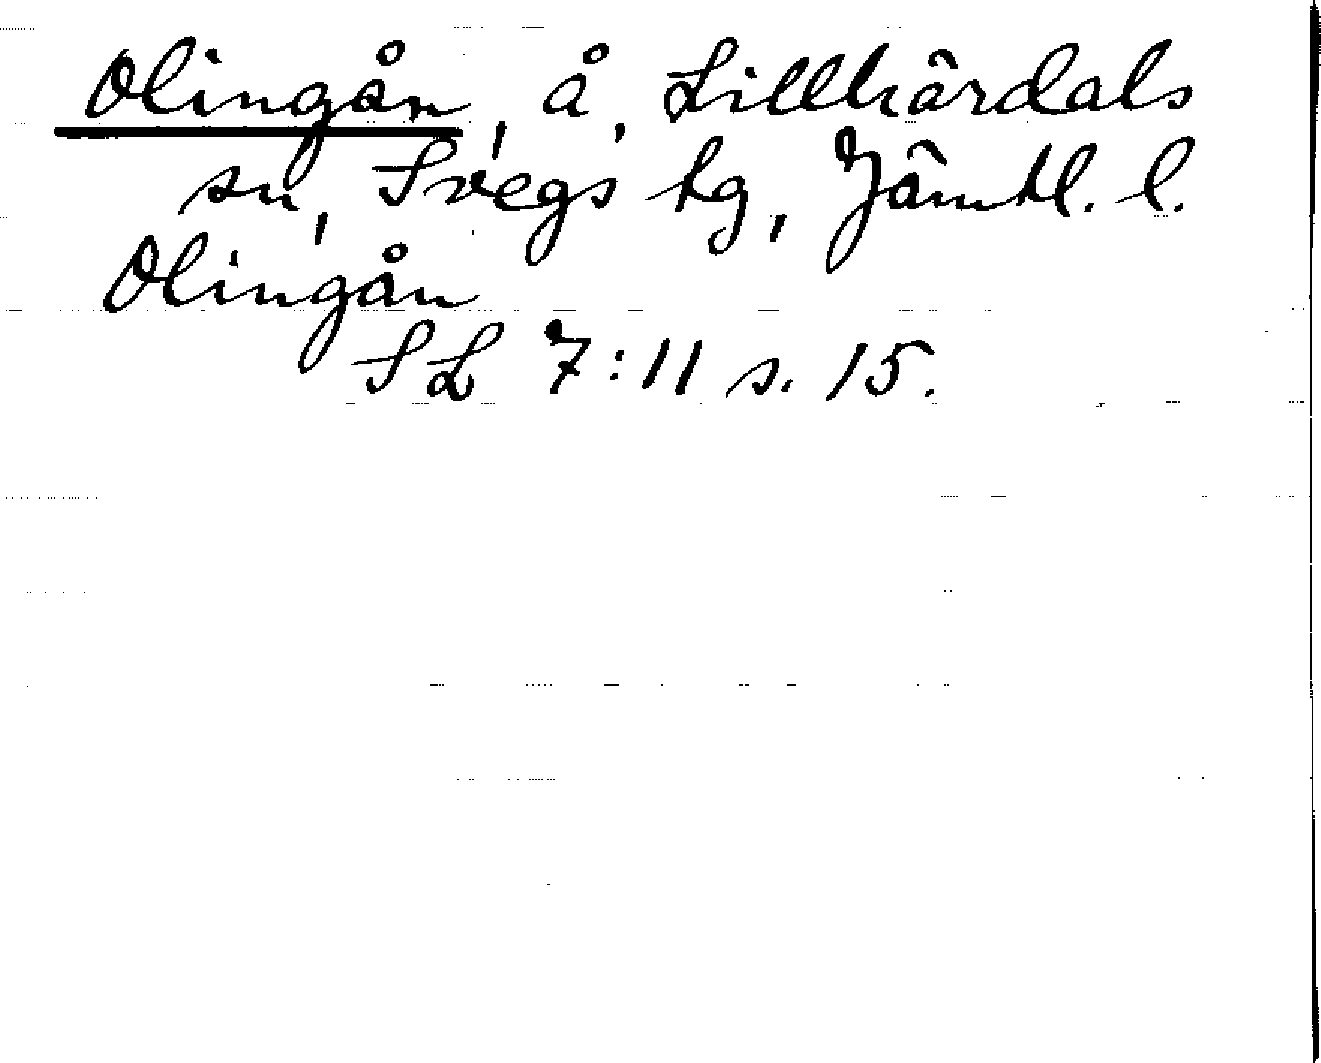 Olingån, å, Lillhärdals
sn, Svegs tg, Jämtl. l.
Olingån
SL 7:11 s. 15.